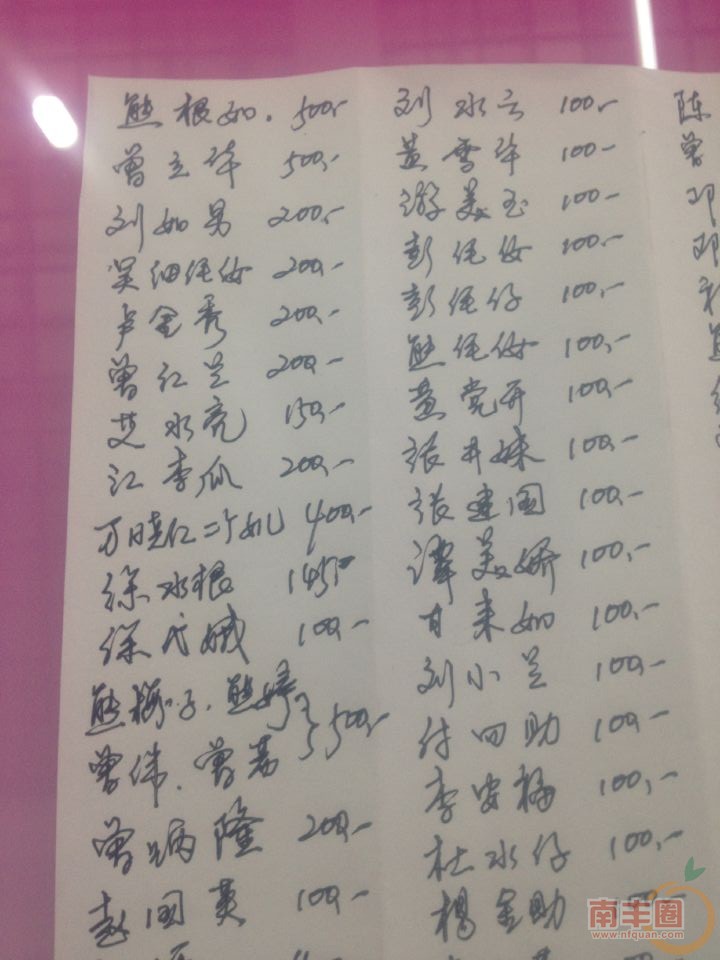 熊根如. 500,-
曾立华 500,-
刘如男 200,-
吴细伲女 200,-
卢金秀 200,-
曾红兰 200,-
艾水亮 150,-
江李瓜 200,-
万晓仁二个女儿 400,-
徐水根 145,-
徐代娥 100,-
熊梅子. 熊婷
曾伟. 曾荔 } 500,-
曾炳隆 200,-
赵国英 100,-
刘水云 100,-
黄雪华 100-
游美玉 100-
彭伲女 100,-
彭伲仔 100,-
熊伲女 100,-
黄党开 100,-
张井妹 100,-
张建国 100,-
谭美娇 100,-
甘来如 100,-
刘小兰 100,-
付四助 100,-
李安梅 100,-
杜水仔 100,-
杨金助 100-
陈
曾
邓
邓
南丰圈
www.nfquan.com